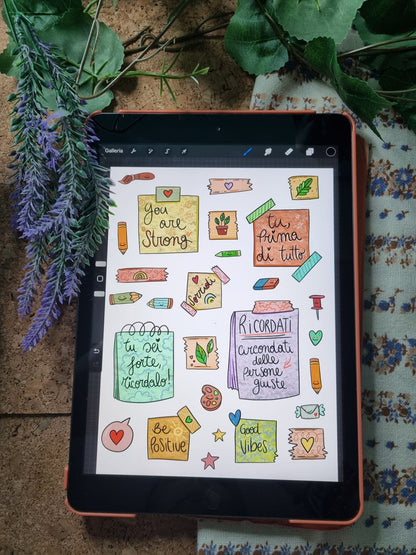 Galleria
You are
Strong
tu,
Prima
di tutto
Sorridi
tu sei
forte,
ricordalo!
RICORDATI
circondati
delle
persone
giuste
Be
Positive
Good
Vibes